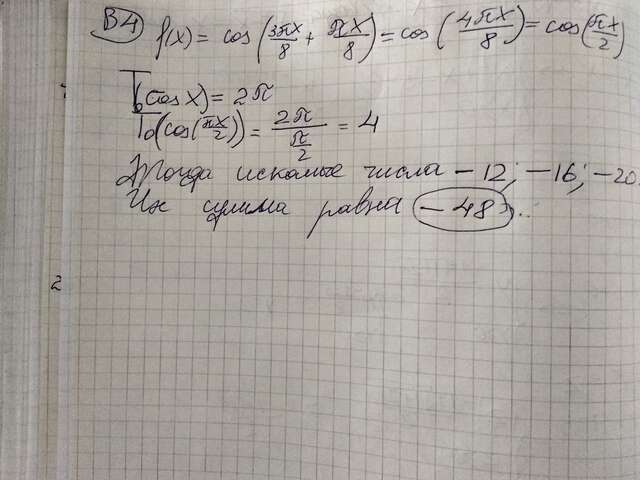 В4 f(x) = cos(3πx/8 + πx/8) = cos(4πx/8) = cos(πx/2)
T₀(cos x) = 2π
T₀(cos(πx/2)) = 2π/(π/2) = 4
Тогда искомые числа -12; -16; -20
Их сумма равна -48
2